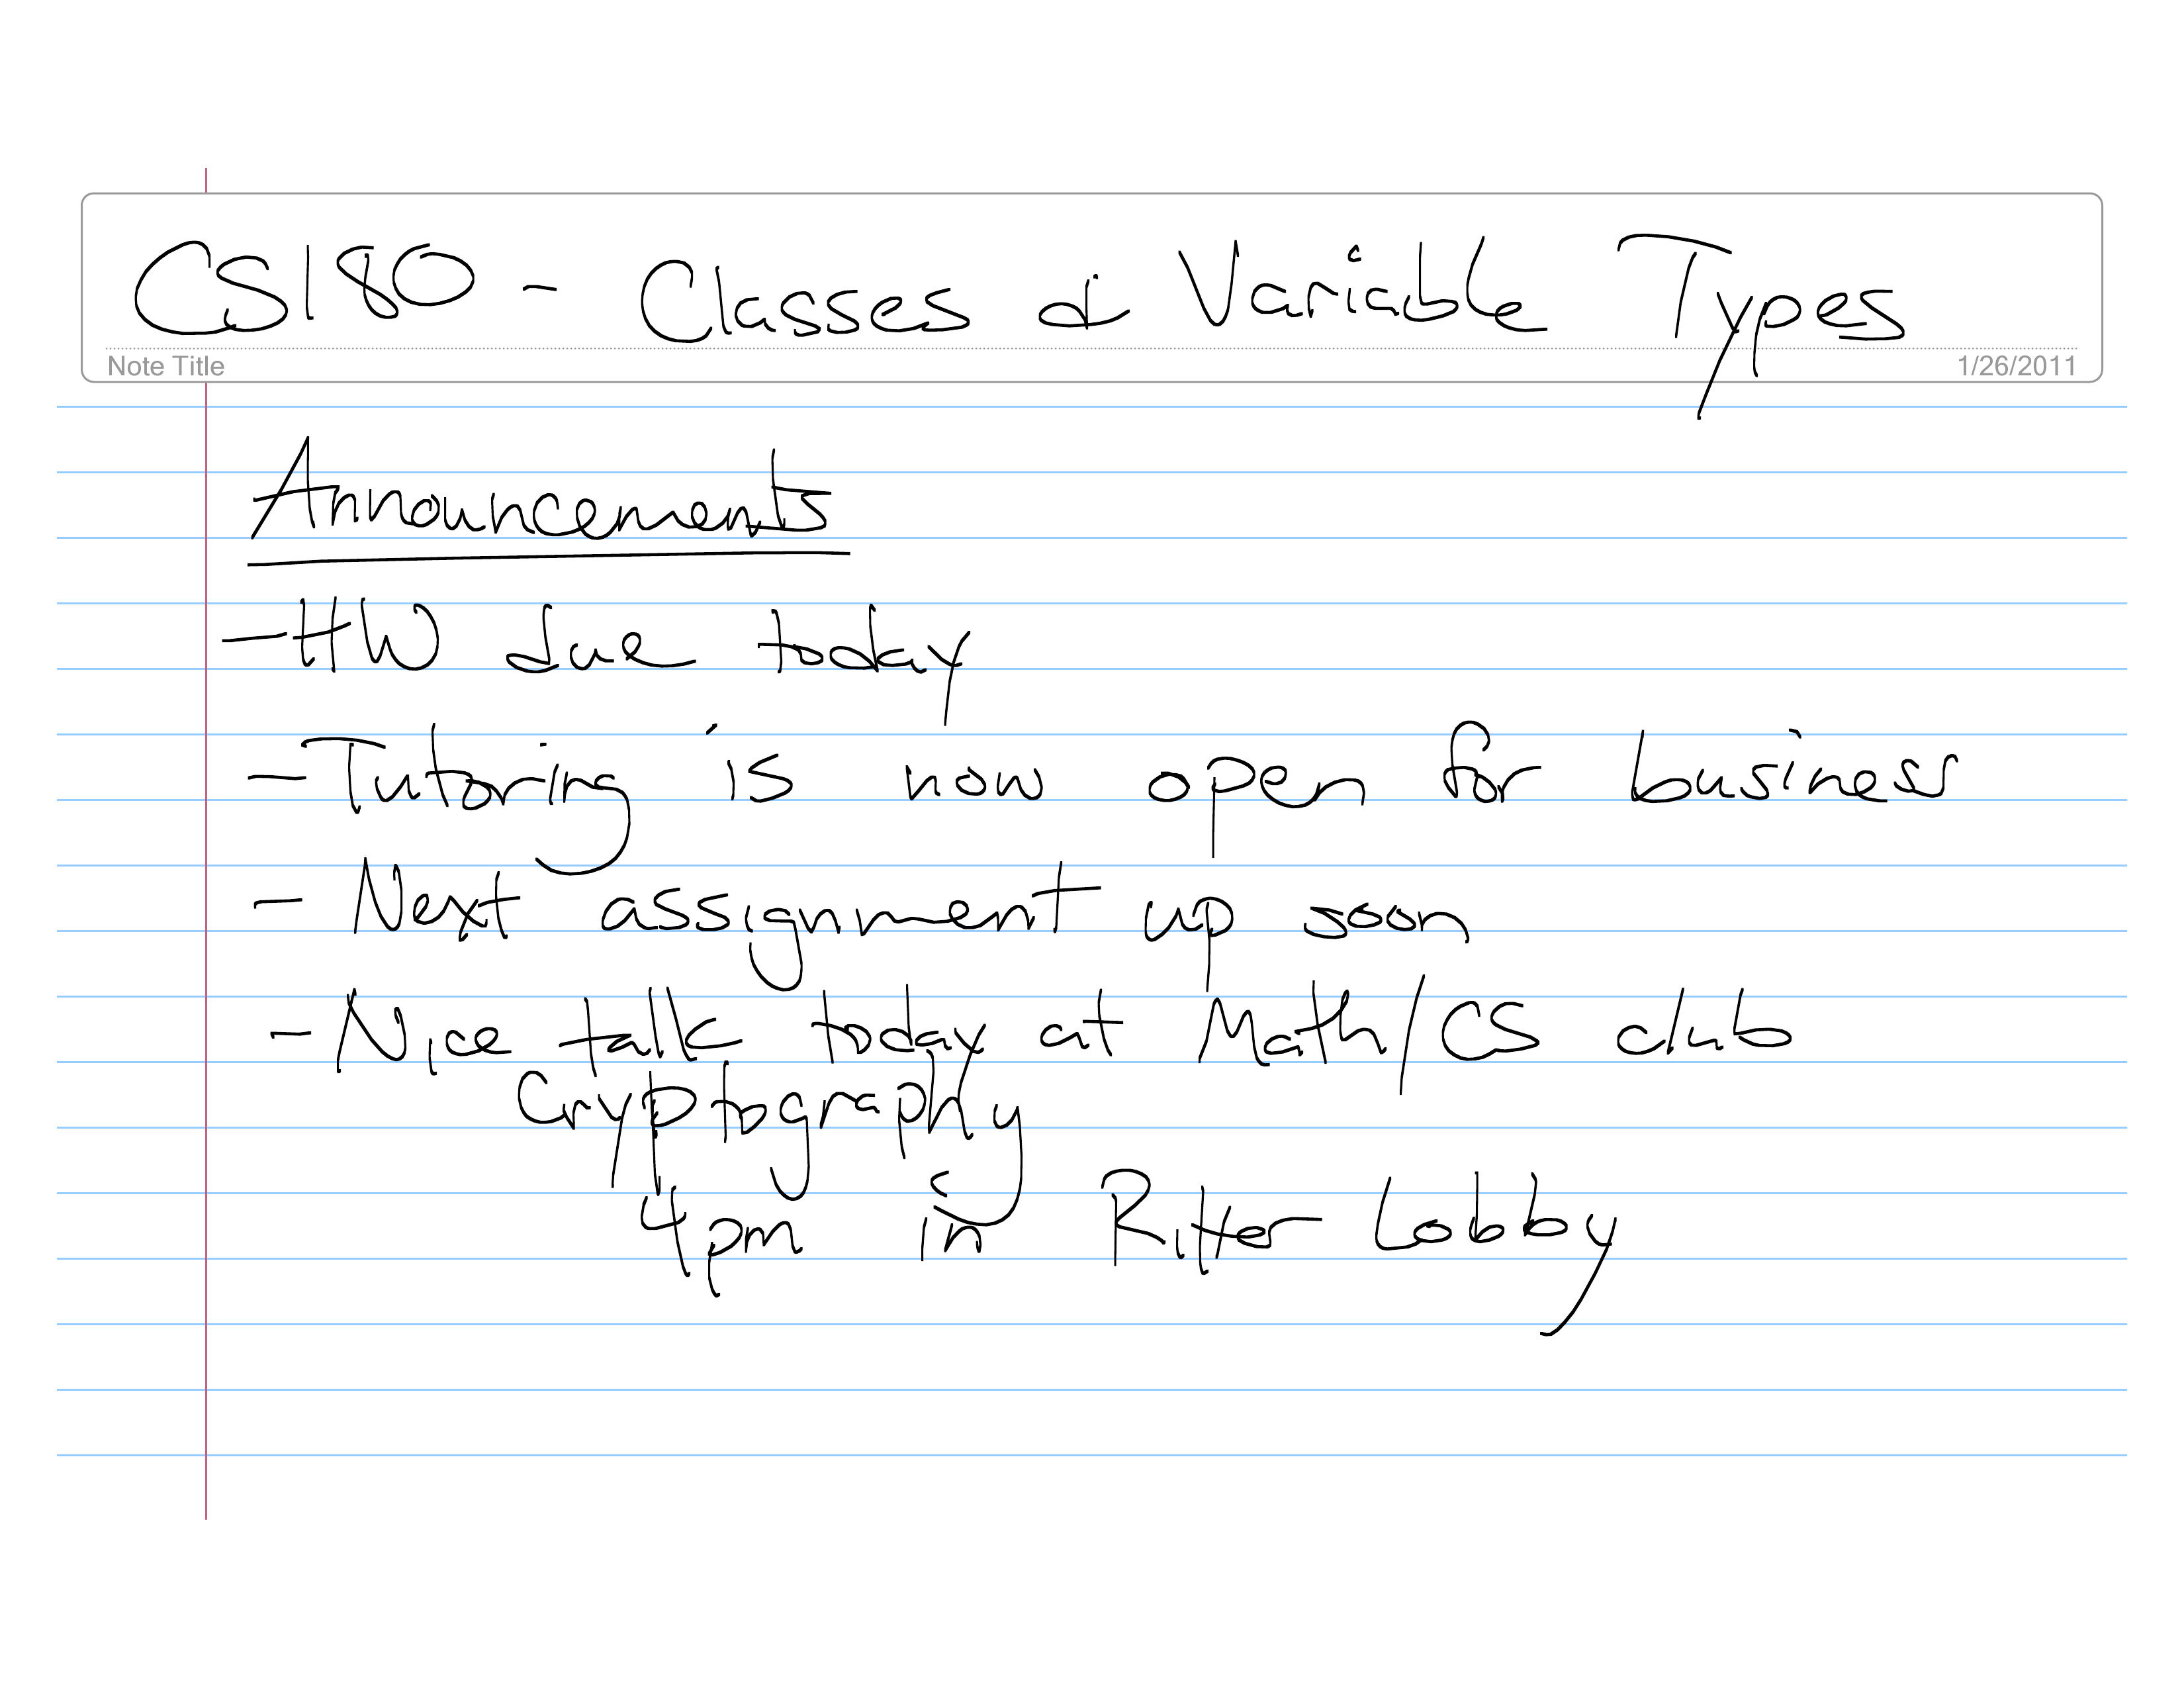 CS180 - Classes & Variable Types
Note Title 1/26/2011
Announcements
- HW due today
- Tutoring is now open for business
- Next assignment up soon
- Nice talk today at Math/CS club
Cryptography
4pm in Ritter Lobby